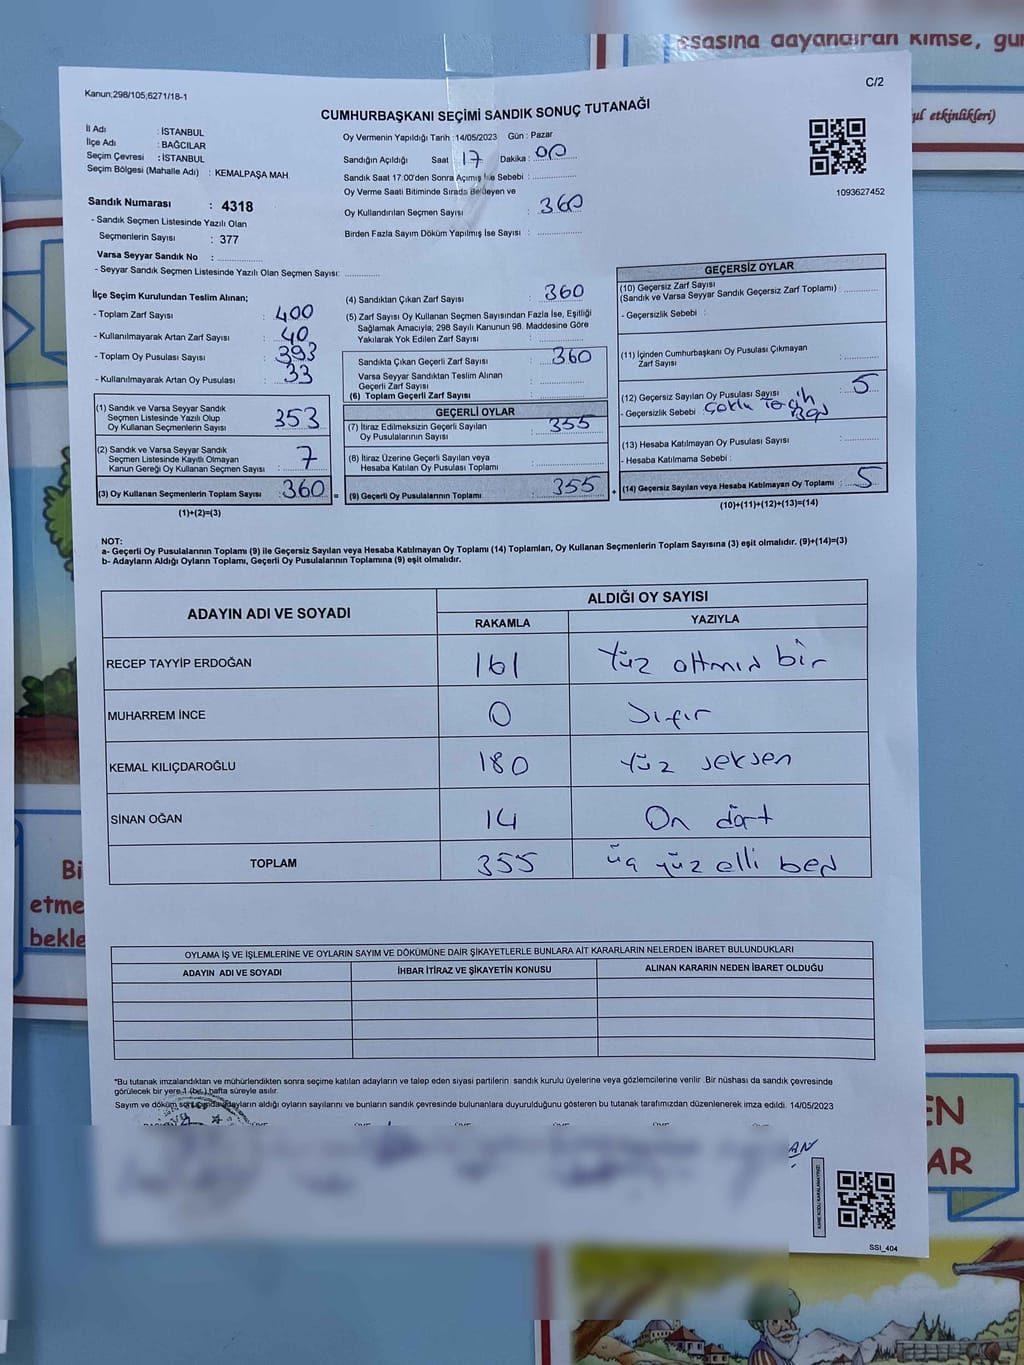 esasına dayandıran kimse, gu
ul etkinlikleri)
Kanun;298/105,6271/18-1
C/2
CUMHURBAŞKANI SEÇİMİ SANDIK SONUÇ TUTANAĞI
İl Adı : İSTANBUL
İlçe Adı : BAĞCILAR
Seçim Çevresi : İSTANBUL
Seçim Bölgesi (Mahalle Adı) : KEMALPAŞA MAH.
Sandık Numarası : 4318
- Sandık Seçmen Listesinde Yazılı Olan
Seçmenlerin Sayısı : 377
Varsa Seyyar Sandık No :
- Seyyar Sandık Seçmen Listesinde Yazılı Olan Seçmen Sayısı:
Oy Vermenin Yapıldığı Tarih :14/05/2023 Gün : Pazar
Sandığın Açıldığı Saat 17 Dakika : 00
Sandık Saat 17:00'den Sonra Açımış İse Sebebi :
Oy Verme Saati Bitiminde Sırada Bekleyen ve
Oy Kullandırılan Seçmen Sayısı : 360
Birden Fazla Sayım Döküm Yapılmış İse Sayısı :
1093627452
İlçe Seçim Kurulundan Teslim Alınan;
- Toplam Zarf Sayısı : 400
- Kullanılmayarak Artan Zarf Sayısı : 40
- Toplam Oy Pusulası Sayısı : 393
- Kullanılmayarak Artan Oy Pusulası : 33
(1) Sandık ve Varsa Seyyar Sandık
Seçmen Listesinde Yazılı Olup
Oy Kullanan Seçmenlerin Sayısı : 353
(2) Sandık ve Varsa Seyyar Sandık
Seçmen Listesinde Kayıtlı Olmayan
Kanun Gereği Oy Kullanan Seçmen Sayısı : 7
(3) Oy Kullanan Seçmenlerin Toplam Sayısı : 360 =
(1)+(2)=(3)
(4) Sandıktan Çıkan Zarf Sayısı : 360
(5) Zarf Sayısı Oy Kullanan Seçmen Sayısından Fazla İse, Eşitliği
Sağlamak Amacıyla; 298 Sayılı Kanunun 98. Maddesine Göre
Yakılarak Yok Edilen Zarf Sayısı :
Sandıkta Çıkan Geçerli Zarf Sayısı : 360
Varsa Seyyar Sandıktan Teslim Alınan
Geçerli Zarf Sayısı :
(6) Toplam Geçerli Zarf Sayısı :
GEÇERLİ OYLAR
(7) İtiraz Edilmeksizin Geçerli Sayılan
Oy Pusulalarının Sayısı : 355
(8) İtiraz Üzerine Geçerli Sayılan veya
Hesaba Katılan Oy Pusulası Toplamı :
(9) Geçerli Oy Pusulalarının Toplamı : 355 +
GEÇERSİZ OYLAR
(10) Geçersiz Zarf Sayısı
(Sandık ve Varsa Seyyar Sandık Geçersiz Zarf Toplamı) :
- Geçersizlik Sebebi :
(11) İçinden Cumhurbaşkanı Oy Pusulası Çıkmayan
Zarf Sayısı :
(12) Geçersiz Sayılan Oy Pusulası Sayısı : 5
- Geçersizlik Sebebi : Çoklu Tercih
(13) Hesaba Katılmayan Oy Pusulası Sayısı :
- Hesaba Katılmama Sebebi :
(14) Geçersiz Sayılan veya Hesaba Katılmayan Oy Toplamı : 5
(10)+(11)+(12)+(13)=(14)
NOT:
a- Geçerli Oy Pusulalarının Toplamı (9) ile Geçersiz Sayılan veya Hesaba Katılmayan Oy Toplamı (14) Toplamları, Oy Kullanan Seçmenlerin Toplam Sayısına (3) eşit olmalıdır. (9)+(14)=(3)
b- Adayların Aldığı Oyların Toplamı, Geçerli Oy Pusulalarının Toplamına (9) eşit olmalıdır.
ADAYIN ADI VE SOYADI
ALDIĞI OY SAYISI
RAKAMLA YAZIYLA
RECEP TAYYİP ERDOĞAN 161 Yüz altmış bir
MUHARREM İNCE 0 Sıfır
KEMAL KILIÇDAROĞLU 180 Yüz seksen
SİNAN OĞAN 14 On dört
TOPLAM 355 üç yüz elli beş
OYLAMA İŞ VE İŞLEMLERİNE VE OYLARIN SAYIM VE DÖKÜMÜNE DAİR ŞİKAYETLERLE BUNLARA AİT KARARLARIN NELERDEN İBARET BULUNDUKLARI
ADAYIN ADI VE SOYADI İHBAR İTİRAZ VE ŞİKAYETİN KONUSU ALINAN KARARIN NEDEN İBARET OLDUĞU
*Bu tutanak imzalandıktan ve mühürlendikten sonra seçime katılan adayların ve talep eden siyasi partilerin sandık kurulu üyelerine veya gözlemcilerine verilir .Bir nüshası da sandık çevresinde
görülecek bir yere 1 (bir ) hafta süreyle asılır.
Sayım ve döküm sonucunda adayların aldığı oyların sayılarını ve bunların sandık çevresinde bulunanlara duyurulduğunu gösteren bu tutanak tarafımızdan düzenlenerek imza edildi. 14/05/2023
SSI_404
Bi
etme
bekle
EN
AR